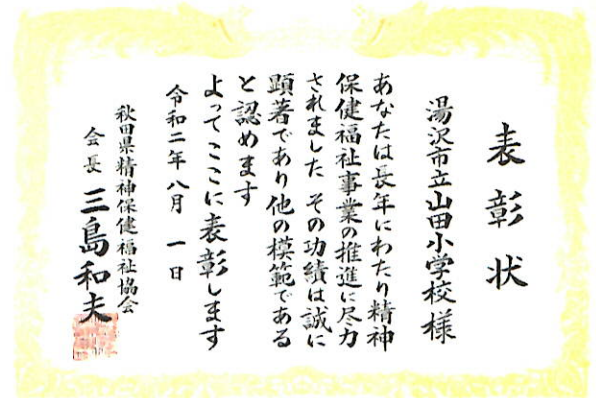 表彰状
湯沢市立山田小学校様
あなたは長年にわたり精神
保健福祉事業の推進に尽力
されました その功績は誠に
顕著であり他の模範である
と認めます
よってここに表彰します
令和二年八月 一 日
秋田県精神保健福祉協会
会長 三島和夫